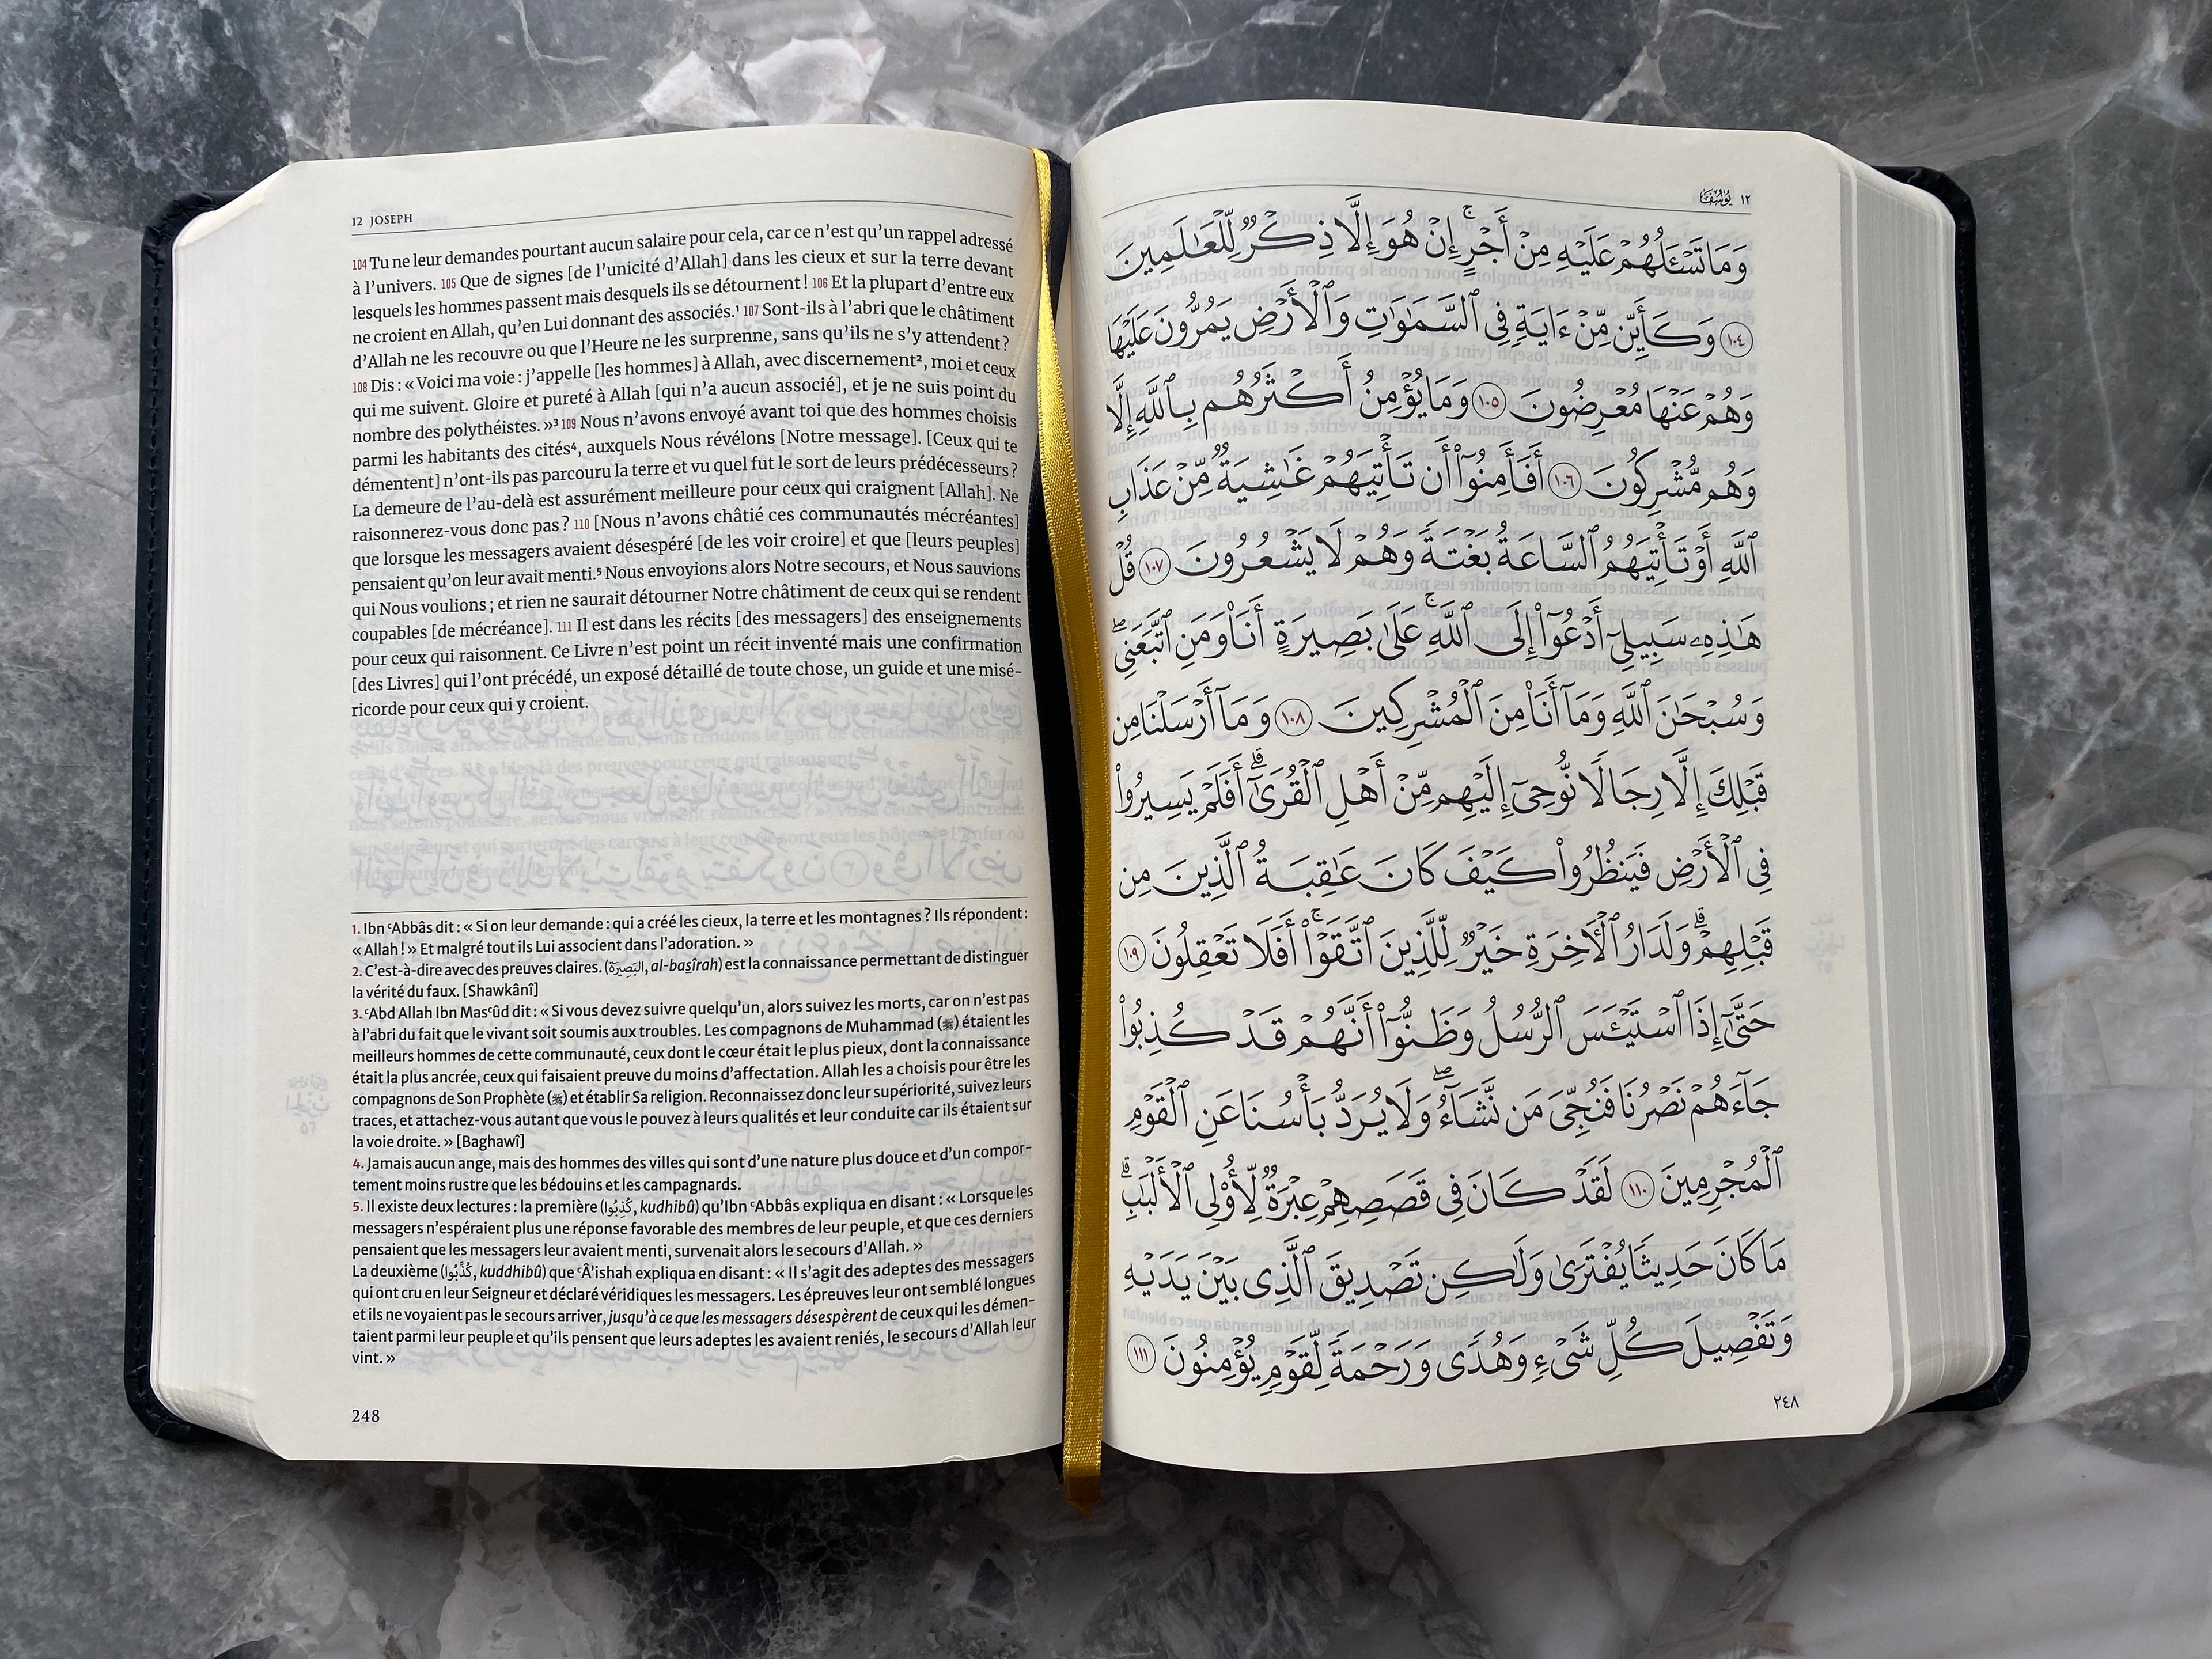 12 JOSEPH
104 Tu ne leur demandes pourtant aucun salaire pour cela, car ce n’est qu’un rappel adressé
à l’univers. 105 Que de signes [de l’unicité d’Allah] dans les cieux et sur la terre devant
lesquels les hommes passent mais desquels ils se détournent ! 106 Et la plupart d’entre eux
ne croient en Allah, qu’en Lui donnant des associés.¹ 107 Sont-ils à l’abri que le châtiment
d’Allah ne les recouvre ou que l’Heure ne les surprenne, sans qu’ils ne s’y attendent ?
108 Dis : « Voici ma voie : j’appelle [les hommes] à Allah, avec discernement², moi et ceux
qui me suivent. Gloire et pureté à Allah [qui n’a aucun associé], et je ne suis point du
nombre des polythéistes. »³ 109 Nous n’avons envoyé avant toi que des hommes choisis
parmi les habitants des cités⁴, auxquels Nous révélons [Notre message]. [Ceux qui te
démentent] n’ont-ils pas parcouru la terre et vu quel fut le sort de leurs prédécesseurs ?
La demeure de l’au-delà est assurément meilleure pour ceux qui craignent [Allah]. Ne
raisonnerez-vous donc pas ? 110 [Nous n’avons châtié ces communautés mécréantes]
que lorsque les messagers avaient désespéré [de les voir croire] et que [leurs peuples]
pensaient qu’on leur avait menti.⁵ Nous envoyions alors Notre secours, et Nous sauvions
qui Nous voulions ; et rien ne saurait détourner Notre châtiment de ceux qui se rendent
coupables [de mécréance]. 111 Il est dans les récits [des messagers] des enseignements
pour ceux qui raisonnent. Ce Livre n’est point un récit inventé mais une confirmation
[des Livres] qui l’ont précédé, un exposé détaillé de toute chose, un guide et une misé-
ricorde pour ceux qui y croient.
1. Ibn ʿAbbâs dit : « Si on leur demande : qui a créé les cieux, la terre et les montagnes ? Ils répondent :
« Allah ! » Et malgré tout ils Lui associent dans l’adoration. »
2. C’est-à-dire avec des preuves claires. (البَصِيرَة, al-basîrah) est la connaissance permettant de distinguer
la vérité du faux. [Shawkânî]
3. ʿAbd Allah Ibn Masʿûd dit : « Si vous devez suivre quelqu’un, alors suivez les morts, car on n’est pas
à l’abri du fait que le vivant soit soumis aux troubles. Les compagnons de Muhammad (ﷺ) étaient les
meilleurs hommes de cette communauté, ceux dont le cœur était le plus pieux, dont la connaissance
était la plus ancrée, ceux qui faisaient preuve du moins d’affectation. Allah les a choisis pour être les
compagnons de Son Prophète (ﷺ) et établir Sa religion. Reconnaissez donc leur supériorité, suivez leurs
traces, et attachez-vous autant que vous le pouvez à leurs qualités et leur conduite car ils étaient sur
la voie droite. » [Baghawî]
4. Jamais aucun ange, mais des hommes des villes qui sont d’une nature plus douce et d’un compor-
tement moins rustre que les bédouins et les campagnards.
5. Il existe deux lectures : la première (كُذِبُوا, kudhibû) qu’Ibn ʿAbbâs expliqua en disant : « Lorsque les
messagers n’espéraient plus une réponse favorable des membres de leur peuple, et que ces derniers
pensaient que les messagers leur avaient menti, survenait alors le secours d’Allah. »
La deuxième (كُذِّبُوا, kuddhibû) que ʿÂ’ishah expliqua en disant : « Il s’agit des adeptes des messagers
qui ont cru en leur Seigneur et déclaré véridiques les messagers. Les épreuves leur ont semblé longues
et ils ne voyaient pas le secours arriver, jusqu’à ce que les messagers désespèrent de ceux qui les démen-
taient parmi leur peuple et qu’ils pensent que leurs adeptes les avaient reniés, le secours d’Allah leur
vint. »
248
١٢ يُوسُف
وَمَا تَسْـَٔلُهُمْ عَلَيْهِ مِنْ أَجْرٍ ۚ إِنْ هُوَ إِلَّا ذِكْرٌ لِّلْعَـٰلَمِينَ
١٠٤ وَكَأَيِّن مِّنْ ءَايَةٍ فِى ٱلسَّمَـٰوَٰتِ وَٱلْأَرْضِ يَمُرُّونَ عَلَيْهَا
وَهُمْ عَنْهَا مُعْرِضُونَ ١٠٥ وَمَا يُؤْمِنُ أَكْثَرُهُم بِٱللَّهِ إِلَّا
وَهُم مُّشْرِكُونَ ١٠٦ أَفَأَمِنُوٓا۟ أَن تَأْتِيَهُمْ غَـٰشِيَةٌ مِّنْ عَذَابِ
ٱللَّهِ أَوْ تَأْتِيَهُمُ ٱلسَّاعَةُ بَغْتَةً وَهُمْ لَا يَشْعُرُونَ ١٠٧ قُلْ
هَـٰذِهِۦ سَبِيلِىٓ أَدْعُوٓا۟ إِلَى ٱللَّهِ ۚ عَلَىٰ بَصِيرَةٍ أَنَا۠ وَمَنِ ٱتَّبَعَنِى ۖ
وَسُبْحَـٰنَ ٱللَّهِ وَمَآ أَنَا۠ مِنَ ٱلْمُشْرِكِينَ ١٠٨ وَمَآ أَرْسَلْنَا مِن
قَبْلِكَ إِلَّا رِجَالًا نُّوحِىٓ إِلَيْهِم مِّنْ أَهْلِ ٱلْقُرَىٰٓ ۗ أَفَلَمْ يَسِيرُوا۟
فِى ٱلْأَرْضِ فَيَنظُرُوا۟ كَيْفَ كَانَ عَـٰقِبَةُ ٱلَّذِينَ مِن
قَبْلِهِمْ ۗ وَلَدَارُ ٱلْـَٔاخِرَةِ خَيْرٌ لِّلَّذِينَ ٱتَّقَوْا۟ ۚ أَفَلَا تَعْقِلُونَ ١٠٩
حَتَّىٰٓ إِذَا ٱسْتَيْـَٔسَ ٱلرُّسُلُ وَظَنُّوٓا۟ أَنَّهُمْ قَدْ كُذِبُوا۟
جَآءَهُمْ نَصْرُنَا فَنُجِّىَ مَن نَّشَآءُ ۖ وَلَا يُرَدُّ بَأْسُنَا عَنِ ٱلْقَوْمِ
ٱلْمُجْرِمِينَ ١١٠ لَقَدْ كَانَ فِى قَصَصِهِمْ عِبْرَةٌ لِّأُو۟لِى ٱلْأَلْبَـٰبِ ۗ
مَا كَانَ حَدِيثًا يُفْتَرَىٰ وَلَـٰكِن تَصْدِيقَ ٱلَّذِى بَيْنَ يَدَيْهِ
وَتَفْصِيلَ كُلِّ شَىْءٍ وَهُدًى وَرَحْمَةً لِّقَوْمٍ يُؤْمِنُونَ ١١١
٢٤٨